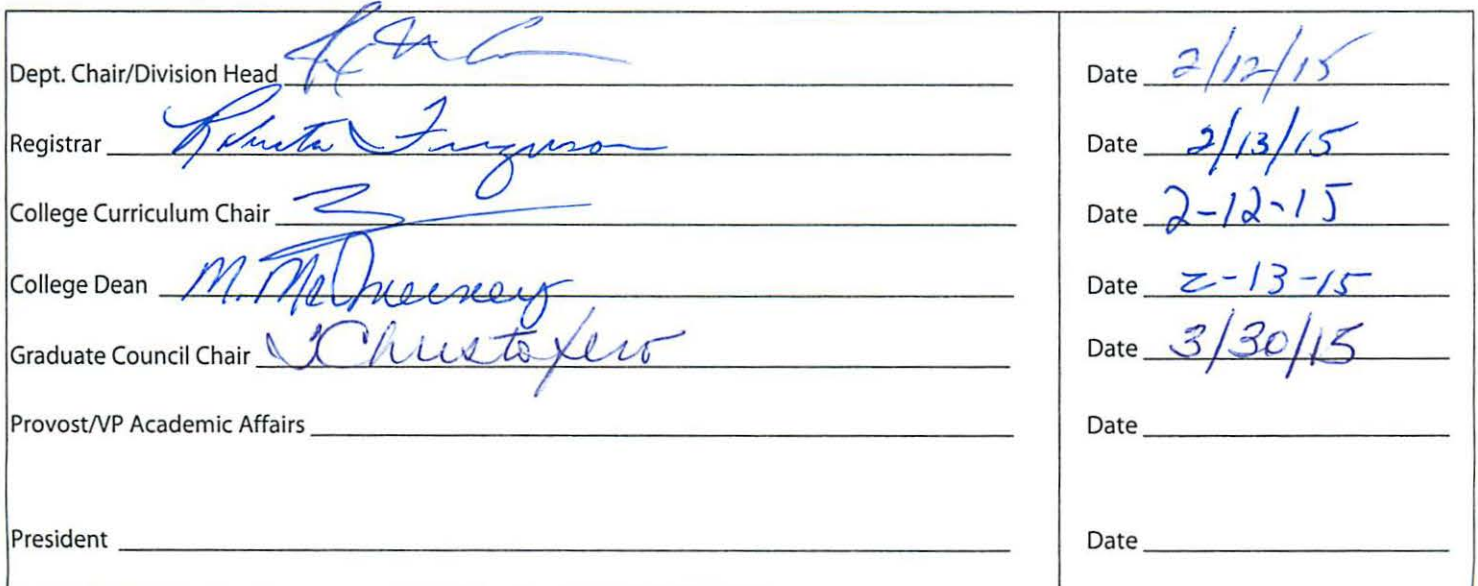 Dept. Chair/Division Head Date 2/12/15
Registrar Roberta Ferguson Date 2/13/15
College Curriculum Chair Date 2-12-15
College Dean M. Date 2-13-15
Graduate Council Chair Date 3/30/15
Provost/VP Academic Affairs Date
President Date